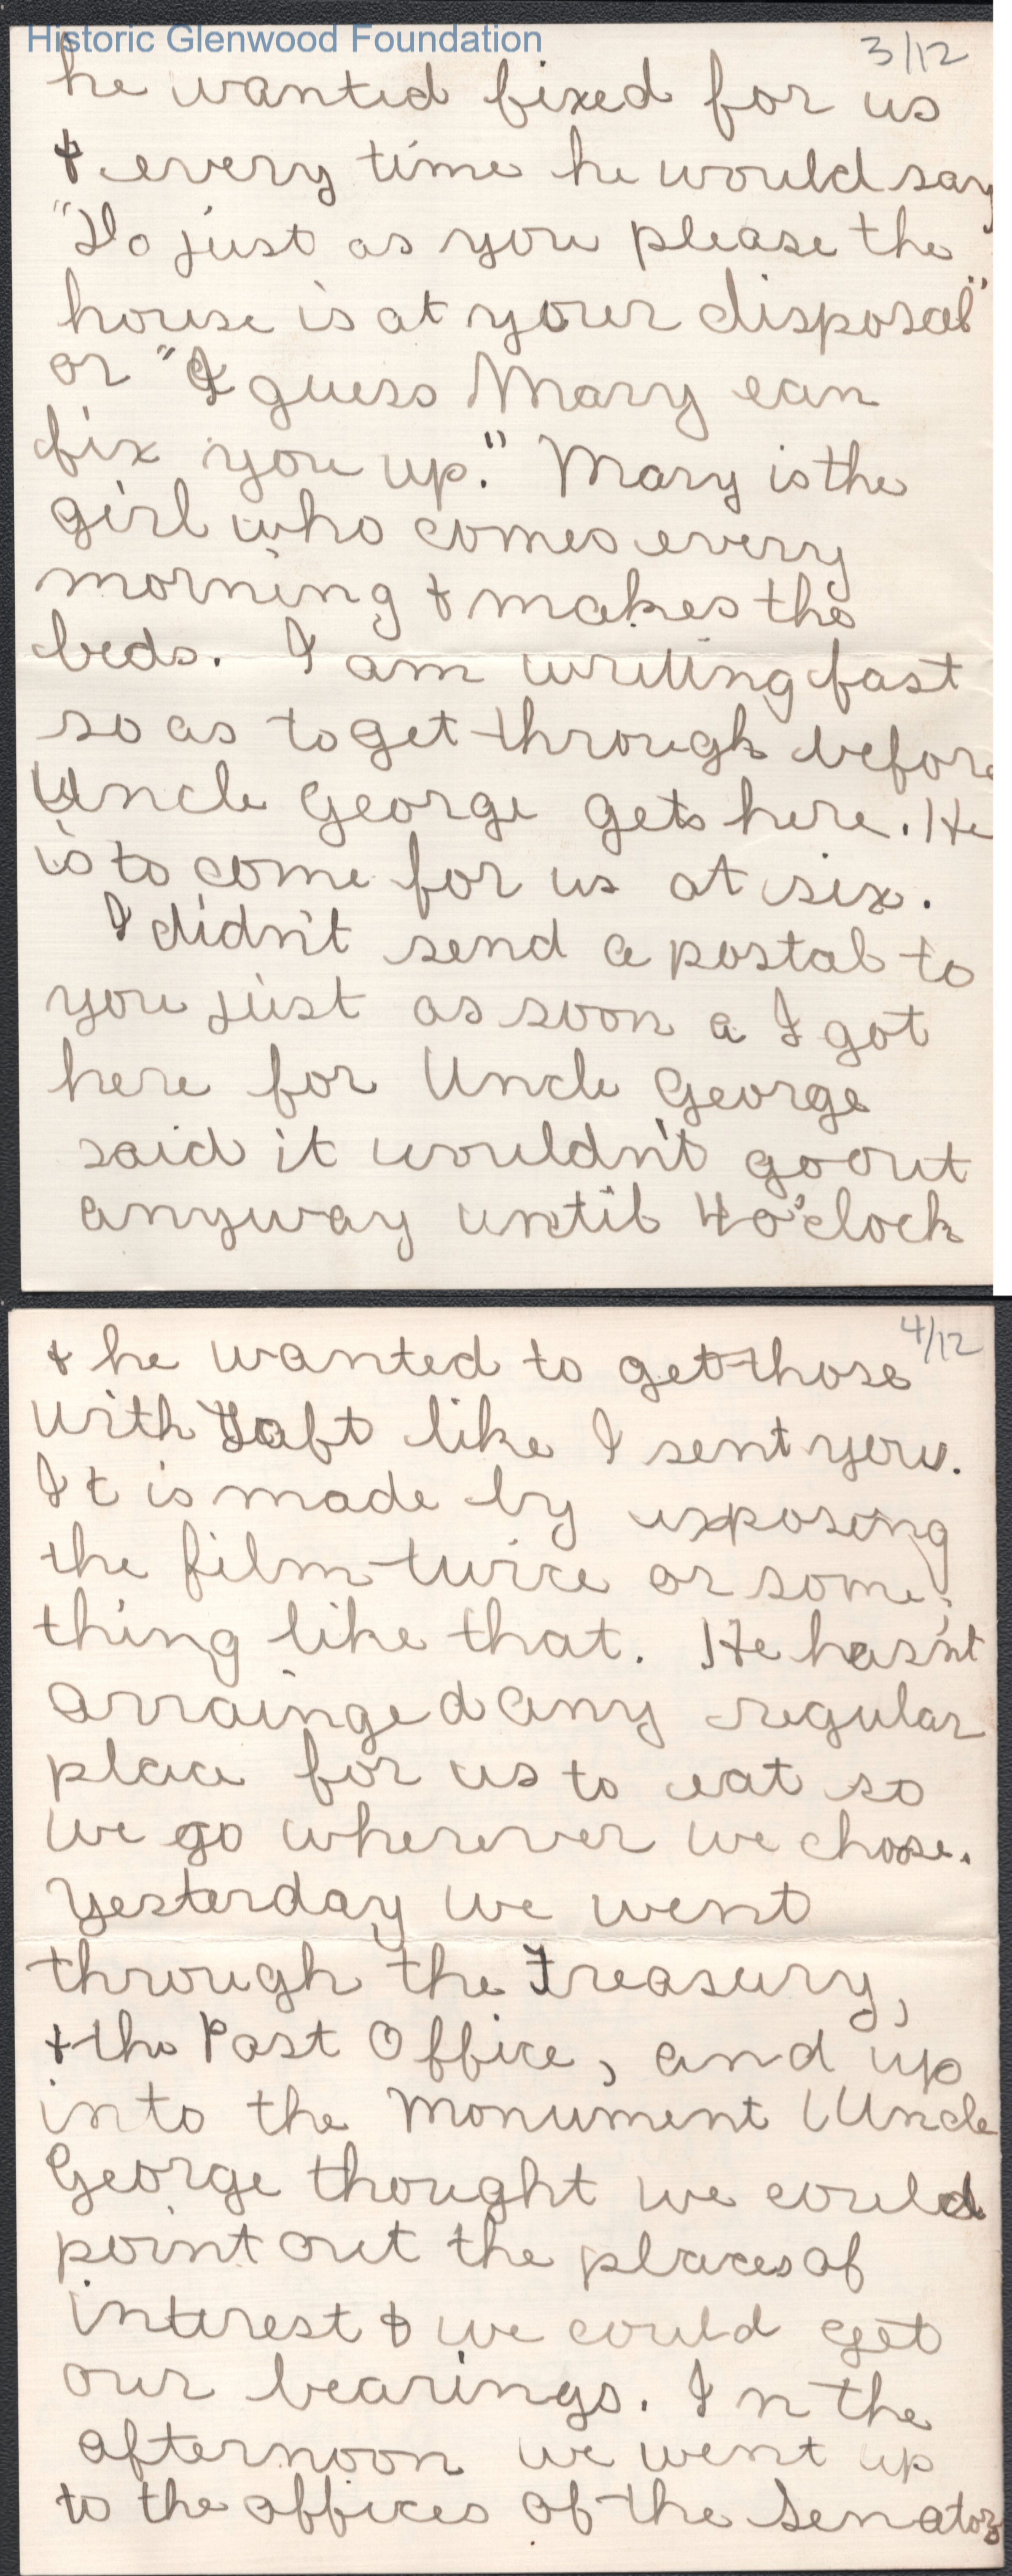 Historic Glenwood Foundation
3/12
he wanted fixed for us
& every time he would say
"Do just as you please the
house is at your disposal"
or "I guess Mary can
fix you up." Mary is the
girl who comes every
morning & makes the
beds. I am writing fast
so as to get through before
Uncle George gets here. He
is to come for us at six.
I didn't send a postal to
you just as soon a I got
here for Uncle George
said it wouldn't go out
anyway until 4 o'clock
4/12
& he wanted to get those
with Taft like I sent you.
It is made by exposing
the film twice or some-
thing like that. He hasn't
arrainged any regular
place for us to eat so
we go wherever we chose.
Yesterday we went
through the Treasury,
& the Post Office, and up
into the Monument (Uncle
George thought we could
point out the places of
interest & we could get
our bearings. In the
afternoon we went up
to the offices of the Senators